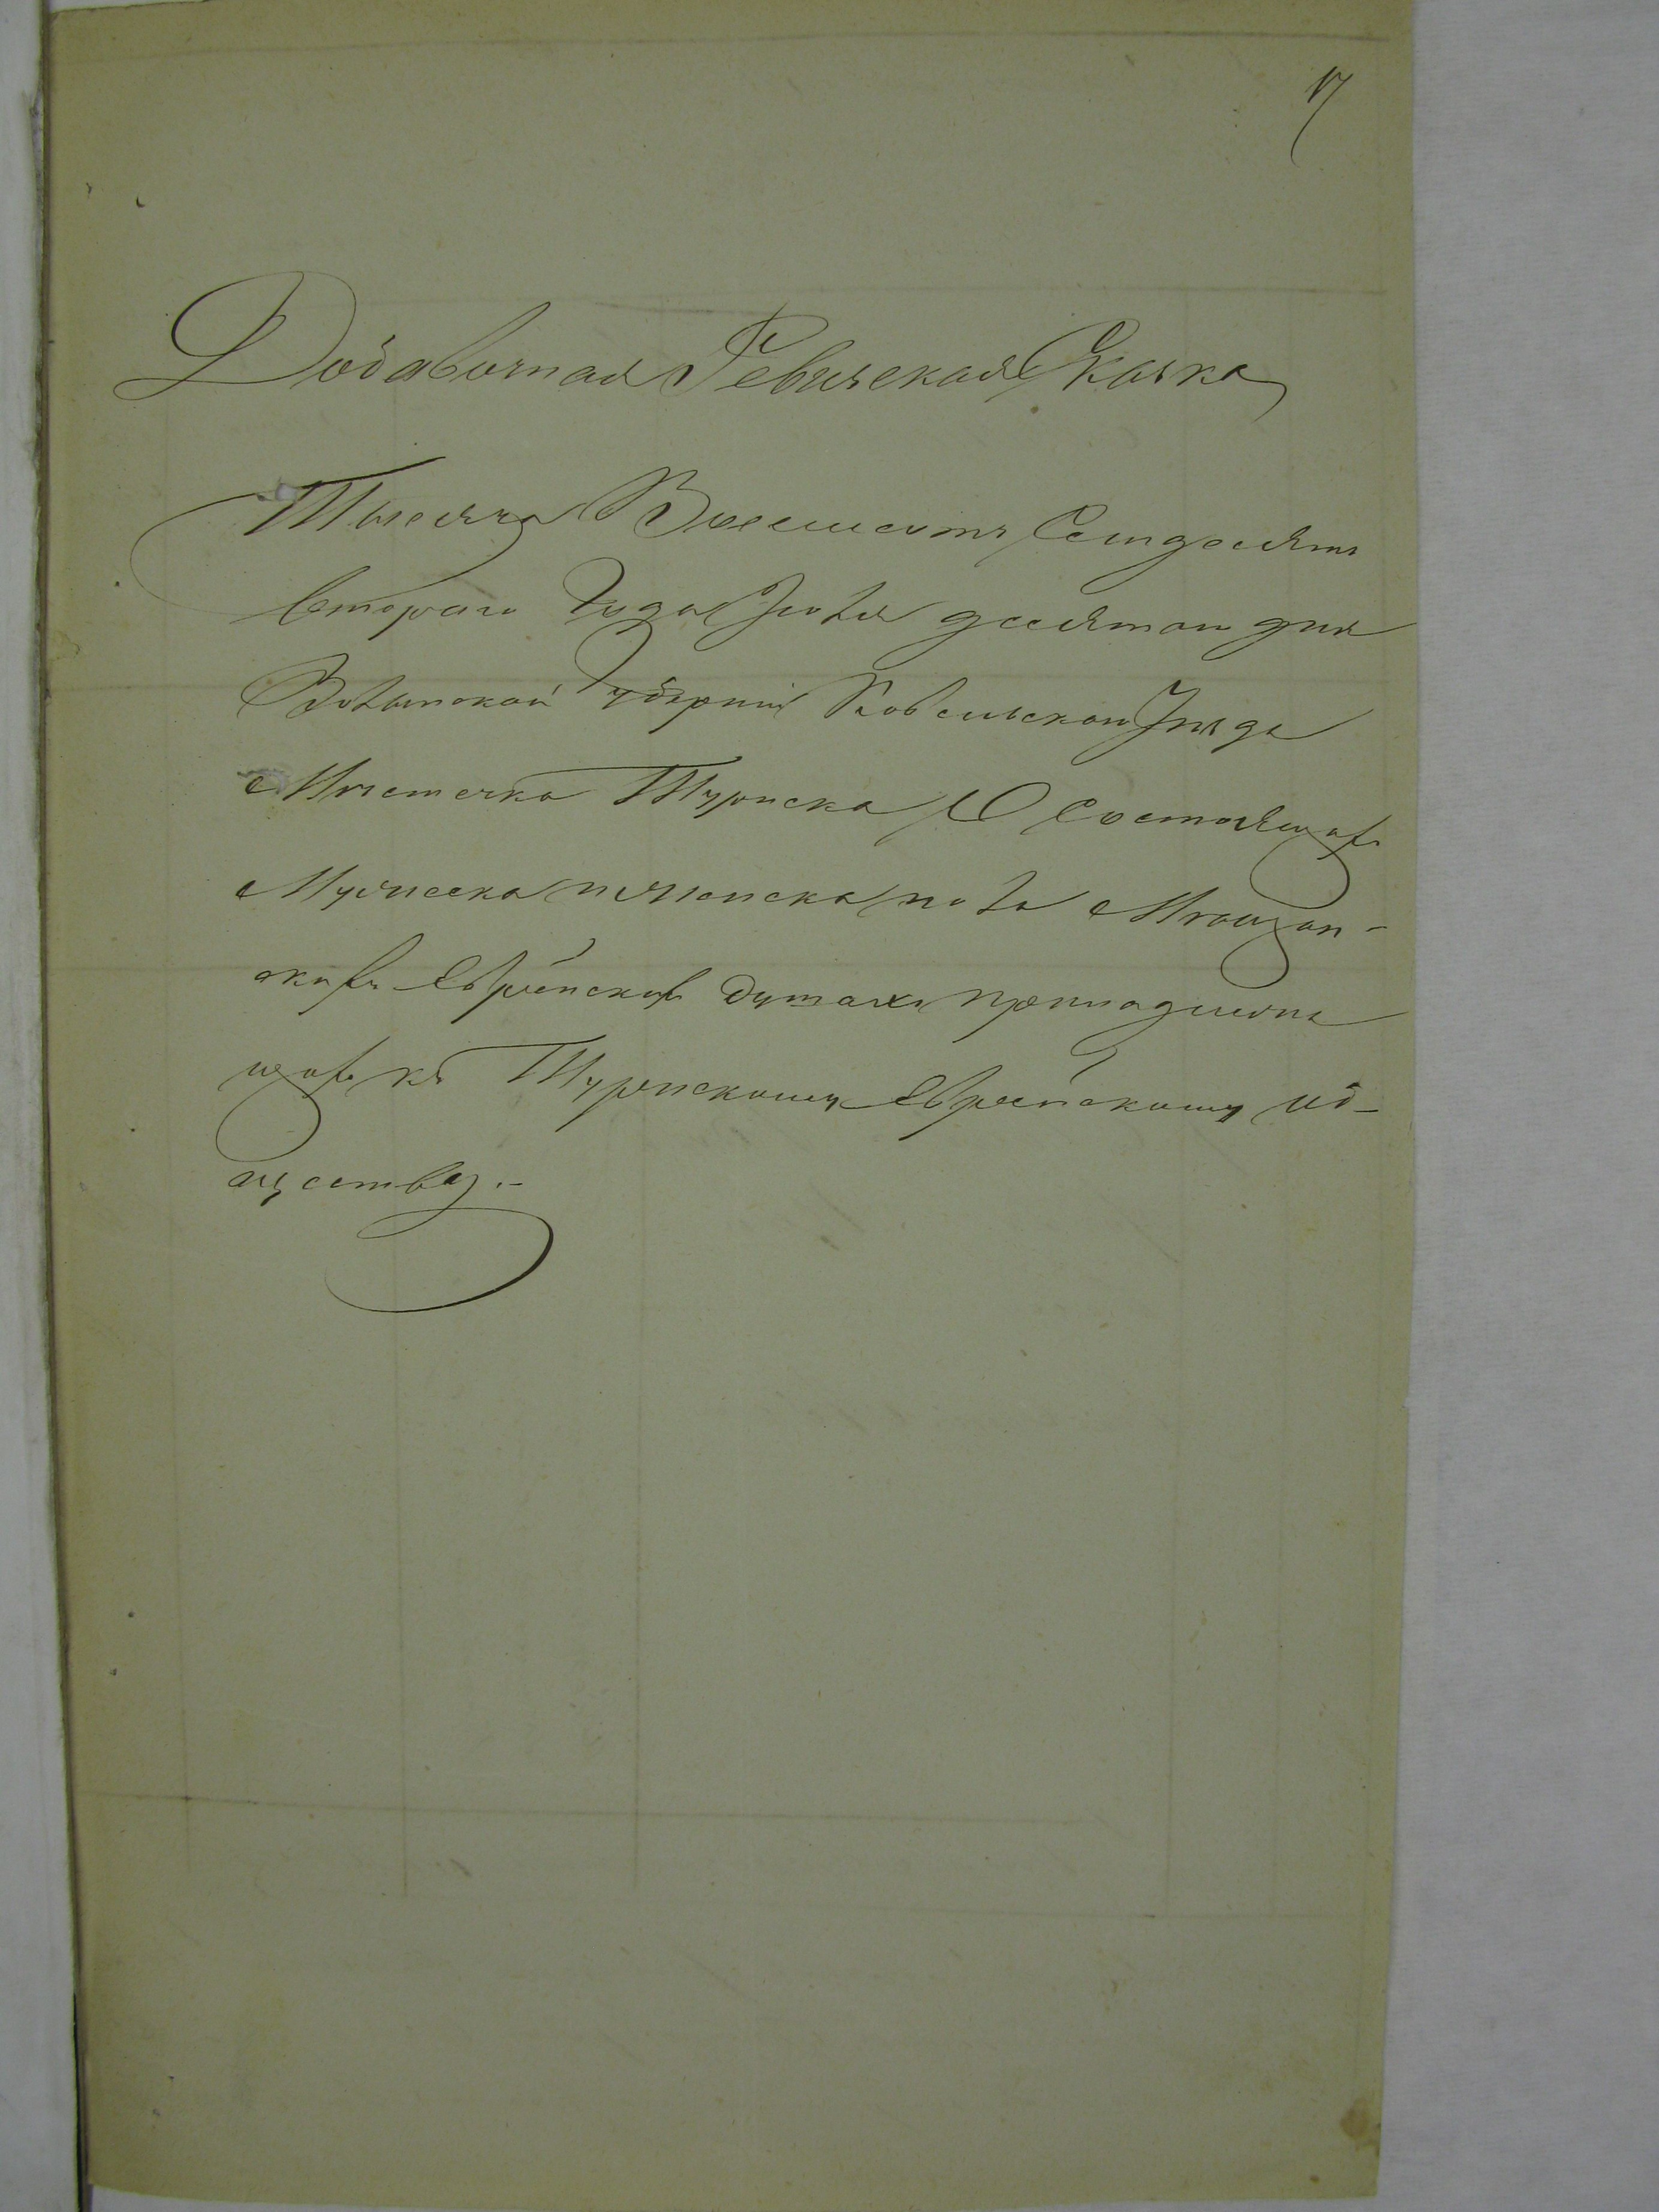 17
Добавочная Ревизская Сказка
Тысяча Восемьсотъ Семдесятъ
втораго Года Іюля десятаго дня
Волынской Губерніи Ковельскаго Уѣзда
Мѣстечка Туриска О Состоящихъ
Мужеска и женска пола Мѣщан-
скихъ Еврейскихъ Душахъ принадлежа
щихъ къ Турійскому Еврейскому об-
ществу.-